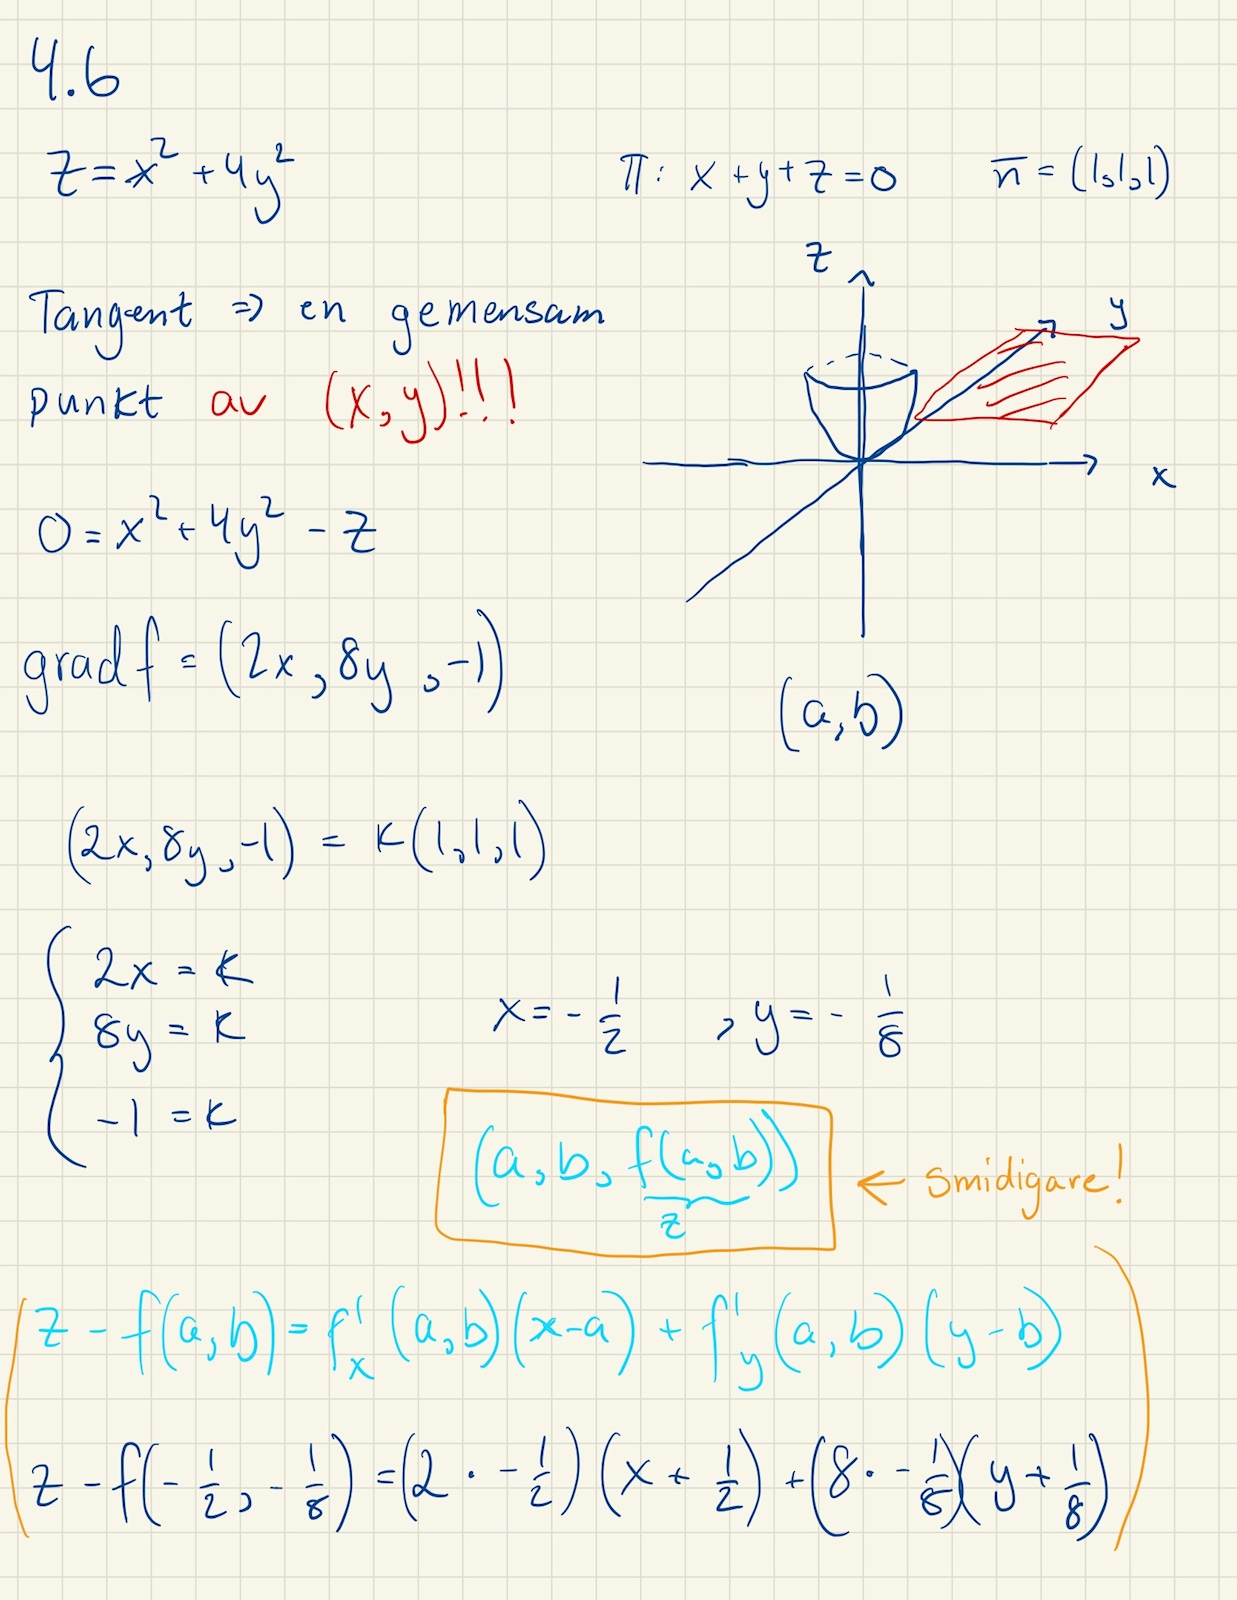 4.6
z = x² + 4y²
π: x + y + z = 0    n̅ = (1,1,1)
Tangent ⇒ en gemensam
punkt av (x,y)!!!
z
y
x
0 = x² + 4y² - z
grad f = (2x, 8y, -1)
(a,b)
(2x, 8y, -1) = k(1,1,1)
2x = k
8y = k
-1 = k
x = - 1/2 , y = - 1/8
(a, b, f(a,b))
z
← smidigare!
z - f(a,b) = f'x (a,b)(x-a) + f'y (a,b)(y-b)
z - f(- 1/2, - 1/8) = (2 · - 1/2)(x + 1/2) + (8 · - 1/8)(y + 1/8)